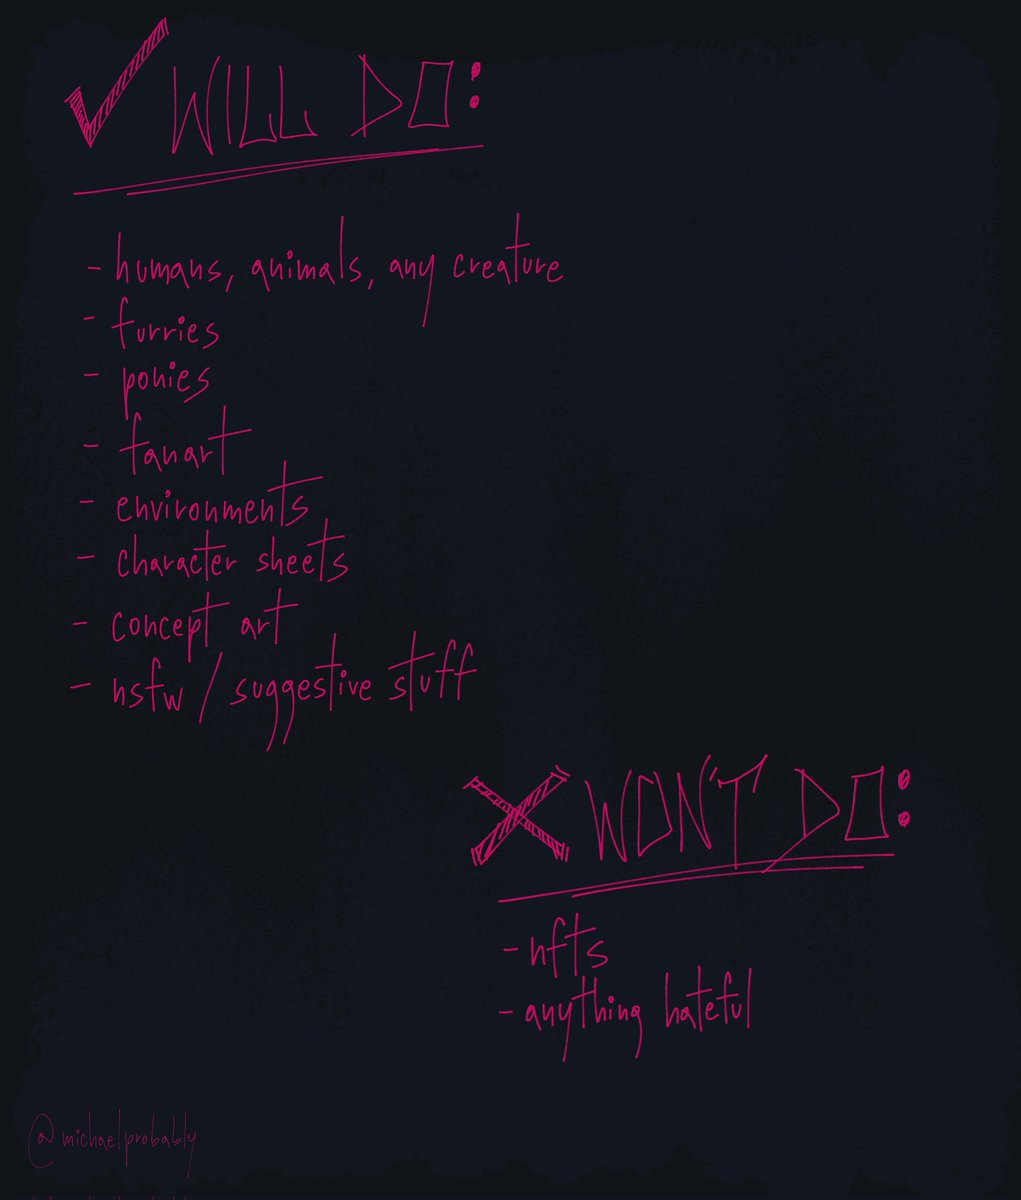 WILL DO:
- humans, animals, any creature
- furries
- ponies
- fanart
- environments
- character sheets
- concept art
- nsfw / suggestive stuff
WON'T DO:
- nfts
- anything hateful
@michaelprobably